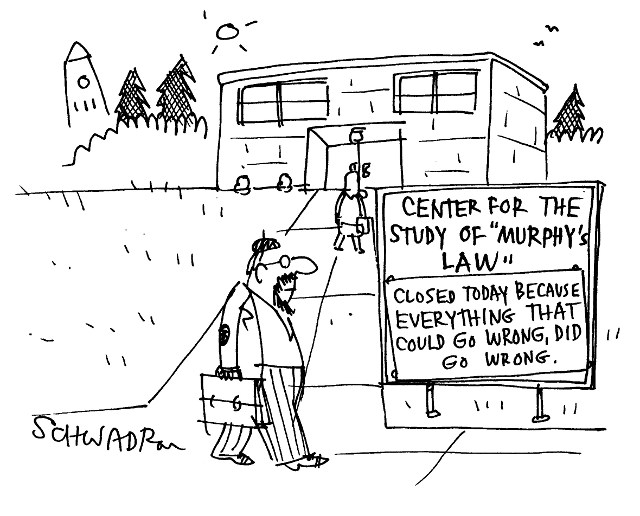 CENTER FOR THE
STUDY OF "MURPHY'S
LAW"
CLOSED TODAY BECAUSE
EVERYTHING THAT
COULD GO WRONG, DID
GO WRONG.
8
SCHWADRON